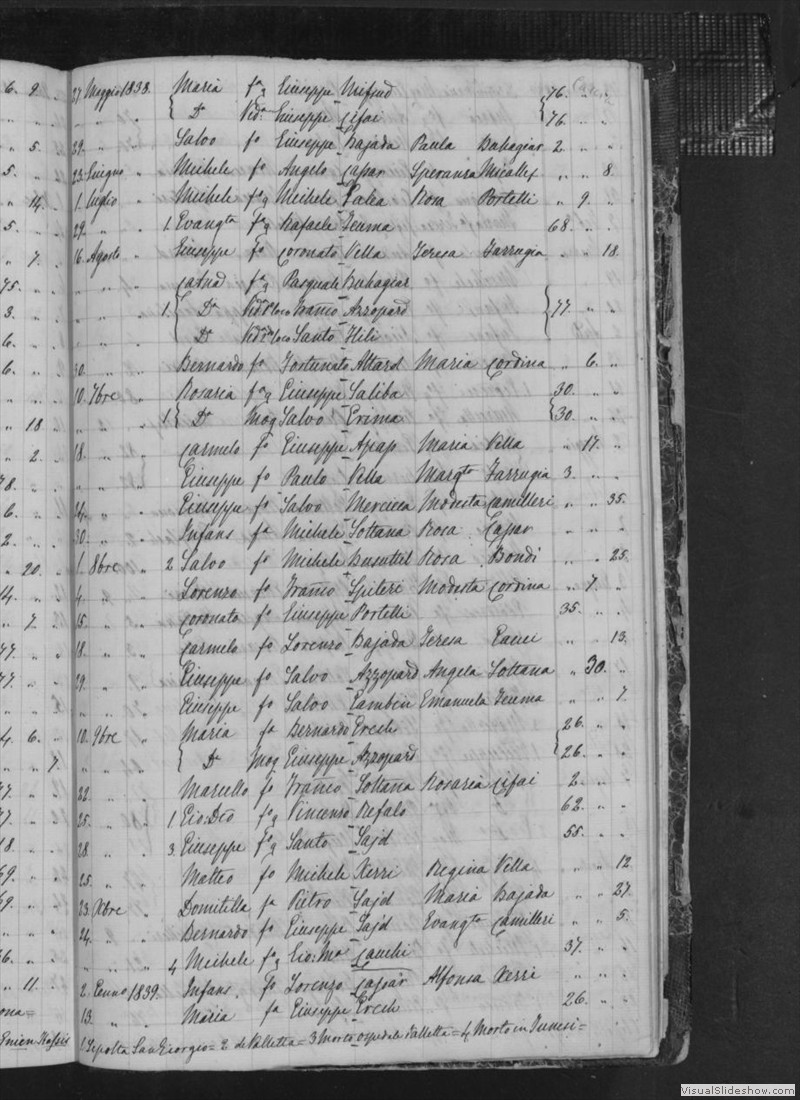 6. 9. „ 27. Maggio 1838. Maria fa q Giuseppe Mifsud { 76. „ „
„ „ „ „ „ „ { Da Vida Giuseppe Cifai { 76. „ „
„ 5. „ 29. „ „ Salvo fo Giuseppe Bajada Paula Buhagiar 2. „ „
5. „ „ 23. Giugno „ Michele fo Angelo Caspar Speranza Micallef „ „ 8.
„ 14. „ 1. Luglio „ Michele fo q Michele Galea Rosa Portelli „ 9. „
5. „ „ 29. „ „ 1. Evangta fa q Rafaele Teuma 68. „ „
„ 7. „ 16. Agosto „ Giuseppe fo Coronato Vella Teresa Farrugia „ „ 18.
75. „ „ „ „ „ Catnd fa q Pasquale Buhagiar
3. „ „ „ „ „ 1. { Da Franco Azzopard { 77. „ „
6. „ „ „ „ „ { Da Santo Hili
6. „ „ 30. „ „ Bernardo fo Fortunato Attard Maria Cordina „ 6. „
„ „ „ 10. 7bre „ Rosaria fa q Giuseppe Saliba { 30. „ „
„ 18. „ „ „ „ 1 { Da Mog Salvo Grima { 30. „ „
„ 2. „ 18. „ „ Carmelo fo Giuseppe Apap Maria Vella „ 17. „
78. „ „ „ „ „ Giuseppe fo Paulo Vella Margta Farrugia 3. „ „
6. „ „ 24. „ „ Giuseppe fo Salvo Mercieca Modesta Camilleri „ „ 35.
2. „ „ 30. „ „ Infans fa Michele Sottana Rosa Caspar „ „ „
„ 20. „ 1. 8bre „ 2 Salvo fo Michele Busuttil Rosa Bondi „ „ 25.
14. „ „ 4. „ „ Lorenzo fo Franco Spiteri Modesta Cordina „ 7. „
„ 7. „ 15. „ „ Coronato fo Giuseppe Portelli 35. „ „
77. „ „ 18. „ „ Carmelo fo Lorenzo Bajada Teresa Gauci „ „ 13.
77. „ „ 29. „ „ Giuseppe fo Salvo Azzopard Angela Sottana „ 30. „
„ „ „ „ „ „ Giuseppe fo Salvo Gambin Emanuela Teuma „ „ 7.
4 6. „ 10. 9bre „ Maria fa Bernardo Grech { 26. „ „
„ „ 7. „ „ „ { Da Mog Giuseppe Azzopard { 26. „ „
77. „ „ 22. „ „ Marcello fo Franco Sottana Rosaria Cifai 2. „ „
77. „ „ 25. „ „ 1 Gio: fo q Vincenzo Refalo 62. „ „
18. „ „ 28. „ „ 3. Giuseppe fo q Santo Sajd 55. „ „
69. „ „ 25. „ „ Matteo fo Michele Xerri Regina Vella „ „ 12.
39. „ „ 23. Xbre „ Domitilla fa Pietro Sajd Maria Bajada „ „ 27.
„ „ „ 24. „ „ Bernardo fo Giuseppe Sajd Evangta Camilleri „ „ 5.
36. „ „ „ „ „ 4 Michele fo q Gio: Ma Cauchi 37. „ „
„ 11. „ 2. Genno 1839. Infans fo Lorenzo Caspar Alfonsa Xerri „ „ „
13. „ „ Maria fa Giuseppe Grech 26. „ „
1 Sepolta San Giorgio = 2 de Valletta = 3 Morto ospedale Valletta = 4 Morto in Tunesi =
VisualSlideshow.com